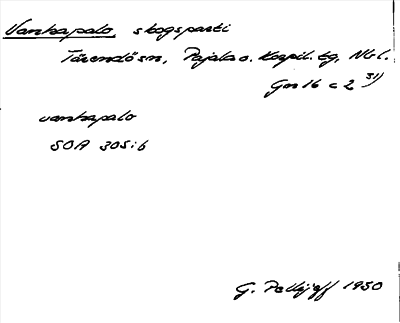 Vankapalo, skogsparti
Tärendö sn, Pajala o. Korpil. tg, Nbl.
Gm 16 c 2 31)
vankapalo
SOA 305:6
G. Pellijeff 1950